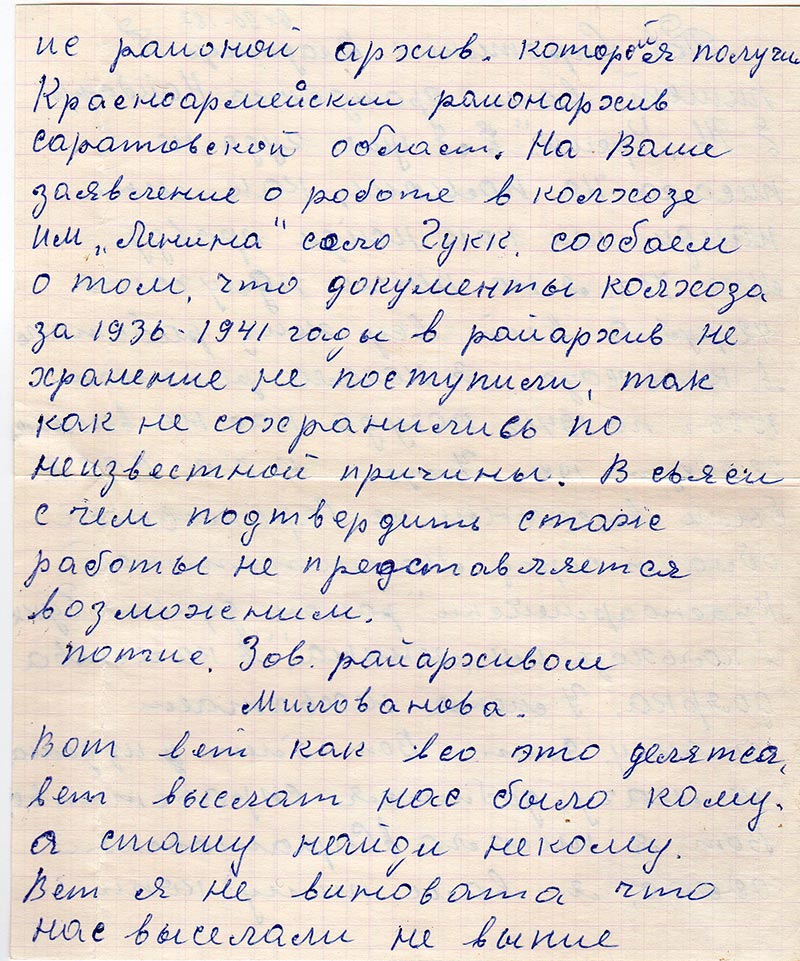 ис районой архив. которойя получи
Красноармейский районархив
саратовской област. На Ваше
заявление о работе в колхозе
им „Ленина" село Гукк. сообаем
о том, что документы колхоза
за 1936-1941 годы в райархив не
хранение не поступили, так
как не сохранились по
неизвестной причины. В свяси
с чем подтвердить стаже
работы не представляется
возможеним.
потпие. Зов. райархивом
Милованова.
Вот вет как всо это делятса,
вет выслат нас было кому.
а сташу найди некому.
Вет я не виновата что
нас выселали не выпие